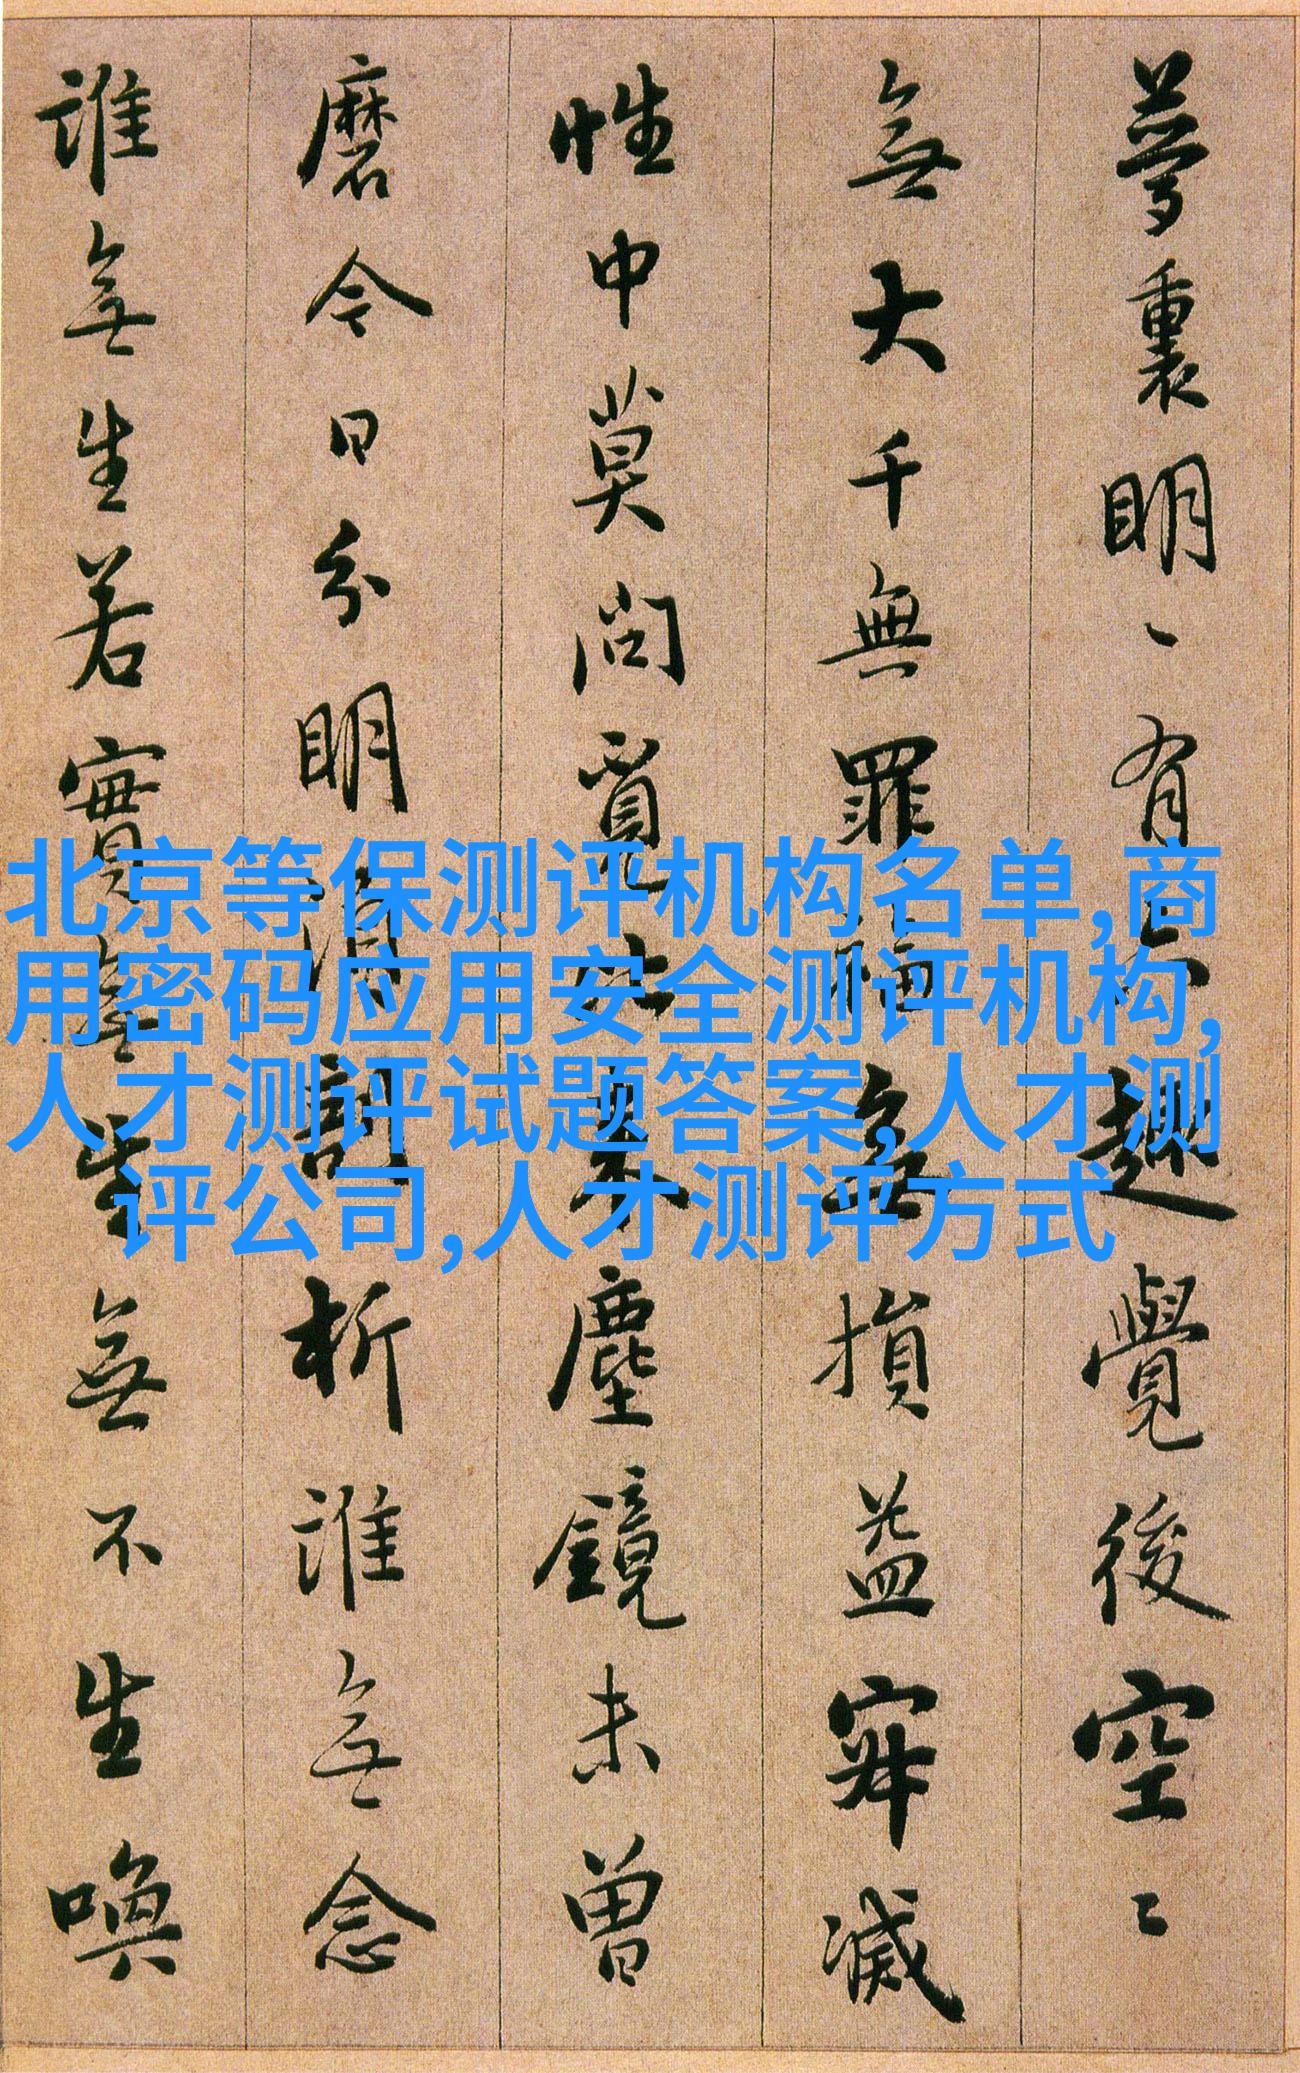 夢裏明〻有六趣覺後空〻
無大千無罪福無損益寂滅
性中莫問覓比来塵鏡未曾
磨今日分明須剖析誰無念
誰無生若實無生無不生喚
北京等保测评机构名单,商
用密码应用安全测评机构,
人才测评试题答案,人才测
评公司,人才测评方式